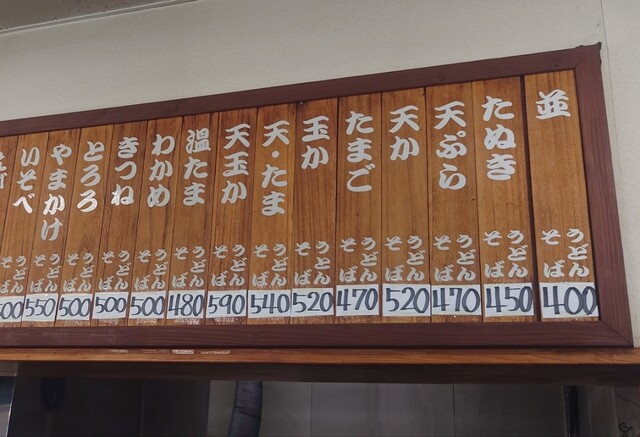 並
うどん
そば
400
たぬき
うどん
そば
450
天ぷら
うどん
そば
470
天か
うどん
そば
520
たまご
うどん
そば
470
玉か
うどん
そば
520
天・たま
うどん
そば
540
天玉か
うどん
そば
590
温たま
うどん
そば
480
わかめ
うどん
そば
500
きつね
うどん
そば
500
とろろ
うどん
そば
500
やまかけ
うどん
そば
550
いそべ
うどん
そば
500